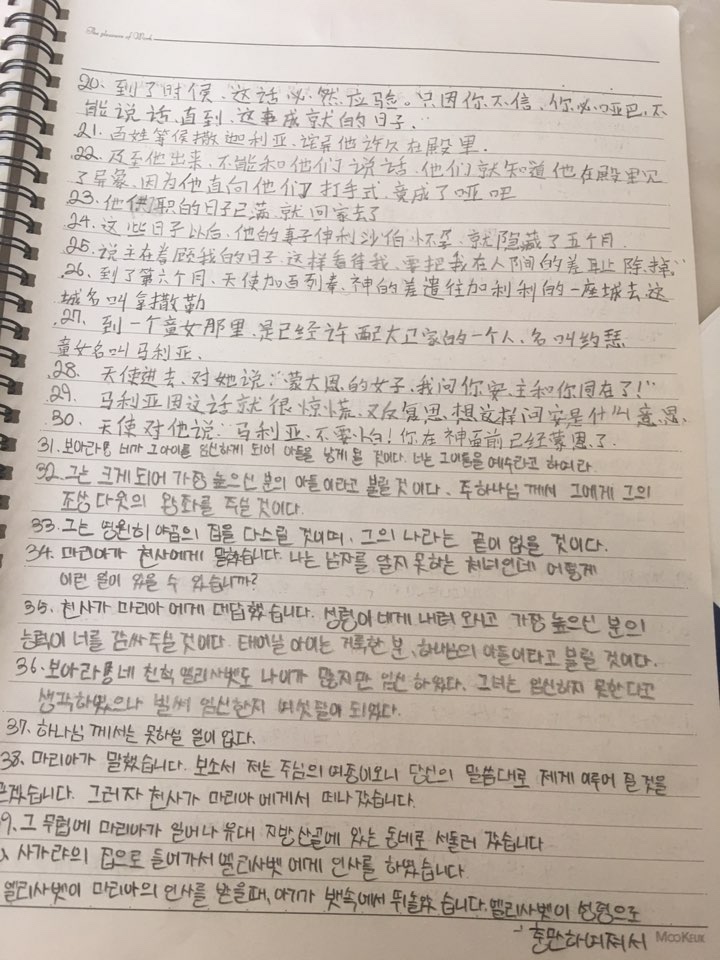 The pleasure of Work
20. 到了时候、这话必然应验。只因你不信、你必哑巴、不
能说话、直到、这事成就的日子."
21. 百姓等候撒迦利亚、诧异他许久在殿里.
22. 及至他出来、不能和他们说话、他们就知道他在殿里见
了异象、因为他直向他们打手式、变成了哑吧
23. 他供职的日子已满、就回家去了
24. 这些日子以后、他的妻子伊利沙伯怀孕、就隐藏了五个月.
25. 说主在眷顾我的日子、这样看待我、要把我在人间的羞耻除掉."
26. 到了第六个月、天使加百列奉、神的差遣往加利利的一座城去、这
城名叫拿撒勒
27. 到一个童女那里、是已经许配大卫家的一个人、名叫约瑟.
童女名叫马利亚.
28. 天使进去、对她说:"蒙大恩的女子、我问你安、主和你同在了!"
29. 马利亚因这话就很惊慌、又反复思想这样问安是什么意思.
30. 天使对他说:"马利亚、不要怕! 你在神面前已经蒙恩了.
31. 보아라 네가 그 아이를 임신하게 되어 아들을 낳게 될 것이다. 너는 그 이름을 예수라고 하여라.
32. 그는 크게 되어 가장 높으신 분의 아들이라고 불릴 것이다. 주 하나님께서 그에게 그의
조상 다윗의 왕좌를 주실 것이다.
33. 그는 영원히 야곱의 집을 다스릴 것이며, 그의 나라는 끝이 없을 것이다.
34. 마리아가 천사에게 말했습니다. 나는 남자를 알지 못하는 처녀인데 어떻게
이런 일이 있을 수 있습니까?
35. 천사가 마리아에게 대답했습니다. 성령이 네게 내려 오시고 가장 높으신 분의
능력이 너를 감싸주실 것이다. 태어날 아이는 거룩한 분, 하나님의 아들이라고 불릴 것이다.
36. 보아라 네 친척 엘리사벳도 나이가 많지만 임신하였다. 그녀는 임신하지 못한다고
생각하였으나 벌써 임신한지 여섯 달이 되었다.
37. 하나님께서는 못하실 일이 없다.
38. 마리아가 말했습니다. 보소서 저는 주님의 여종이오니 당신의 말씀대로 제게 이루어 질 것을
믿겠습니다. 그러자 천사가 마리아에게서 떠나갔습니다.
9. 그 무렵에 마리아가 일어나 유대 지방 산골에 있는 동네로 서둘러 갔습니다
사가랴의 집으로 들어가서 엘리사벳에게 인사를 하였습니다.
엘리사벳이 마리아의 인사를 받을때, 아기가 뱃속에서 뛰놀았습니다. 엘리사벳이 성령으로
충만하여져서
MOOKEUK